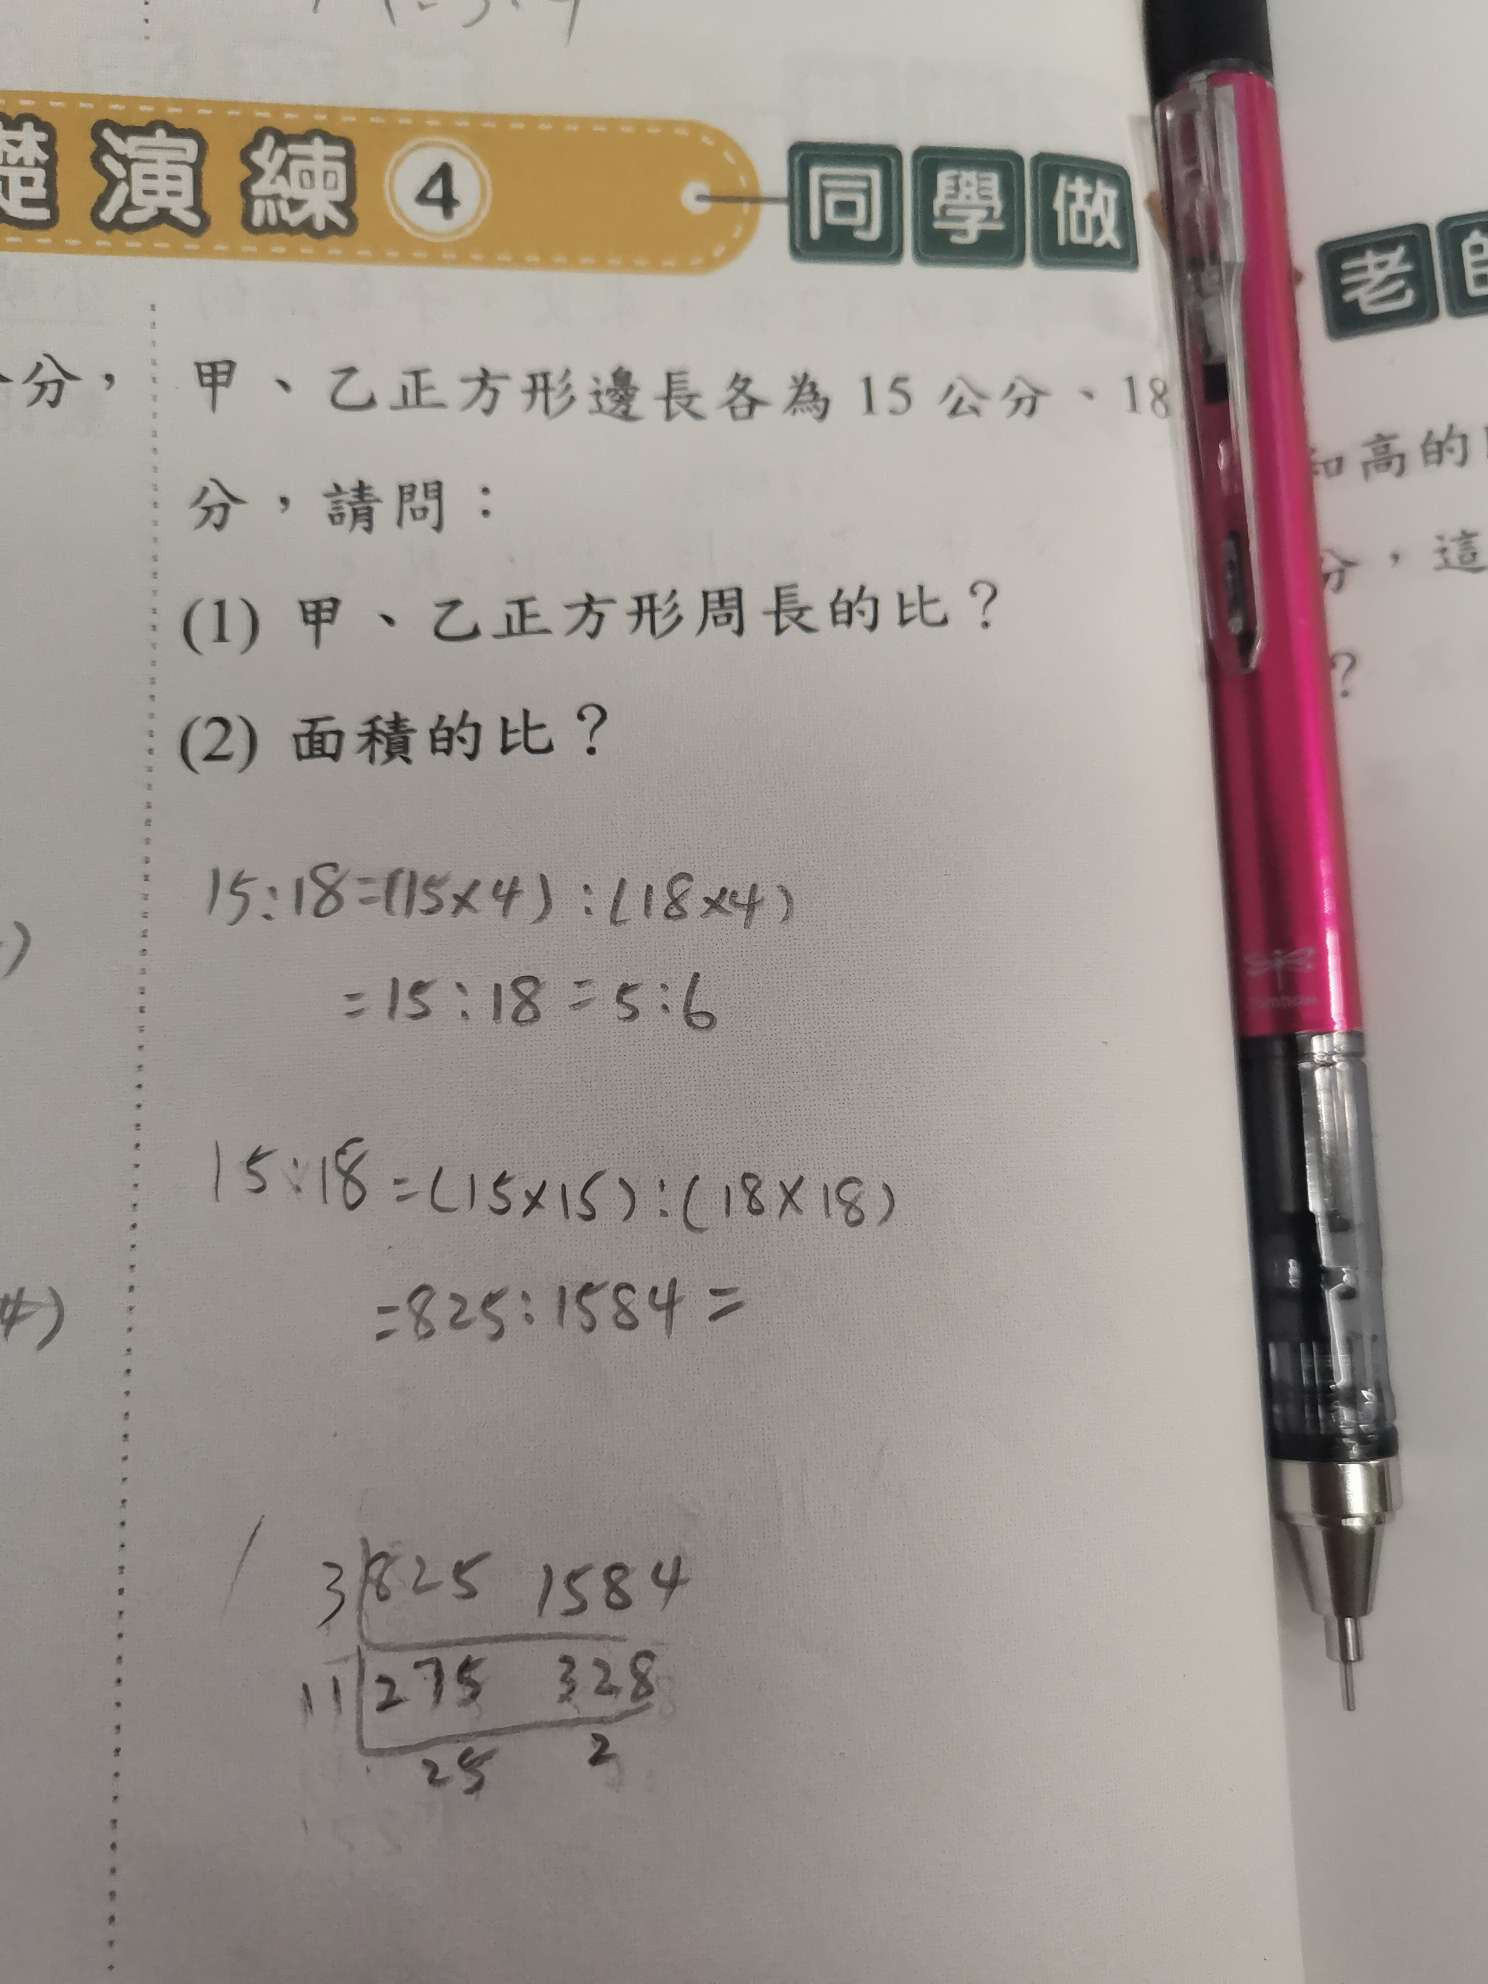 礎演練4 同學做
甲、乙正方形邊長各為 15 公分、18
分，請問：
(1) 甲、乙正方形周長的比？
(2) 面積的比？
15:18=(15×4):(18×4)
=15:18=5:6
15:18=(15×15):(18×18)
=825:1584=
3 825 1584
11 275 328
25 2
分，
)
4)
老師
和高的
分，這
？